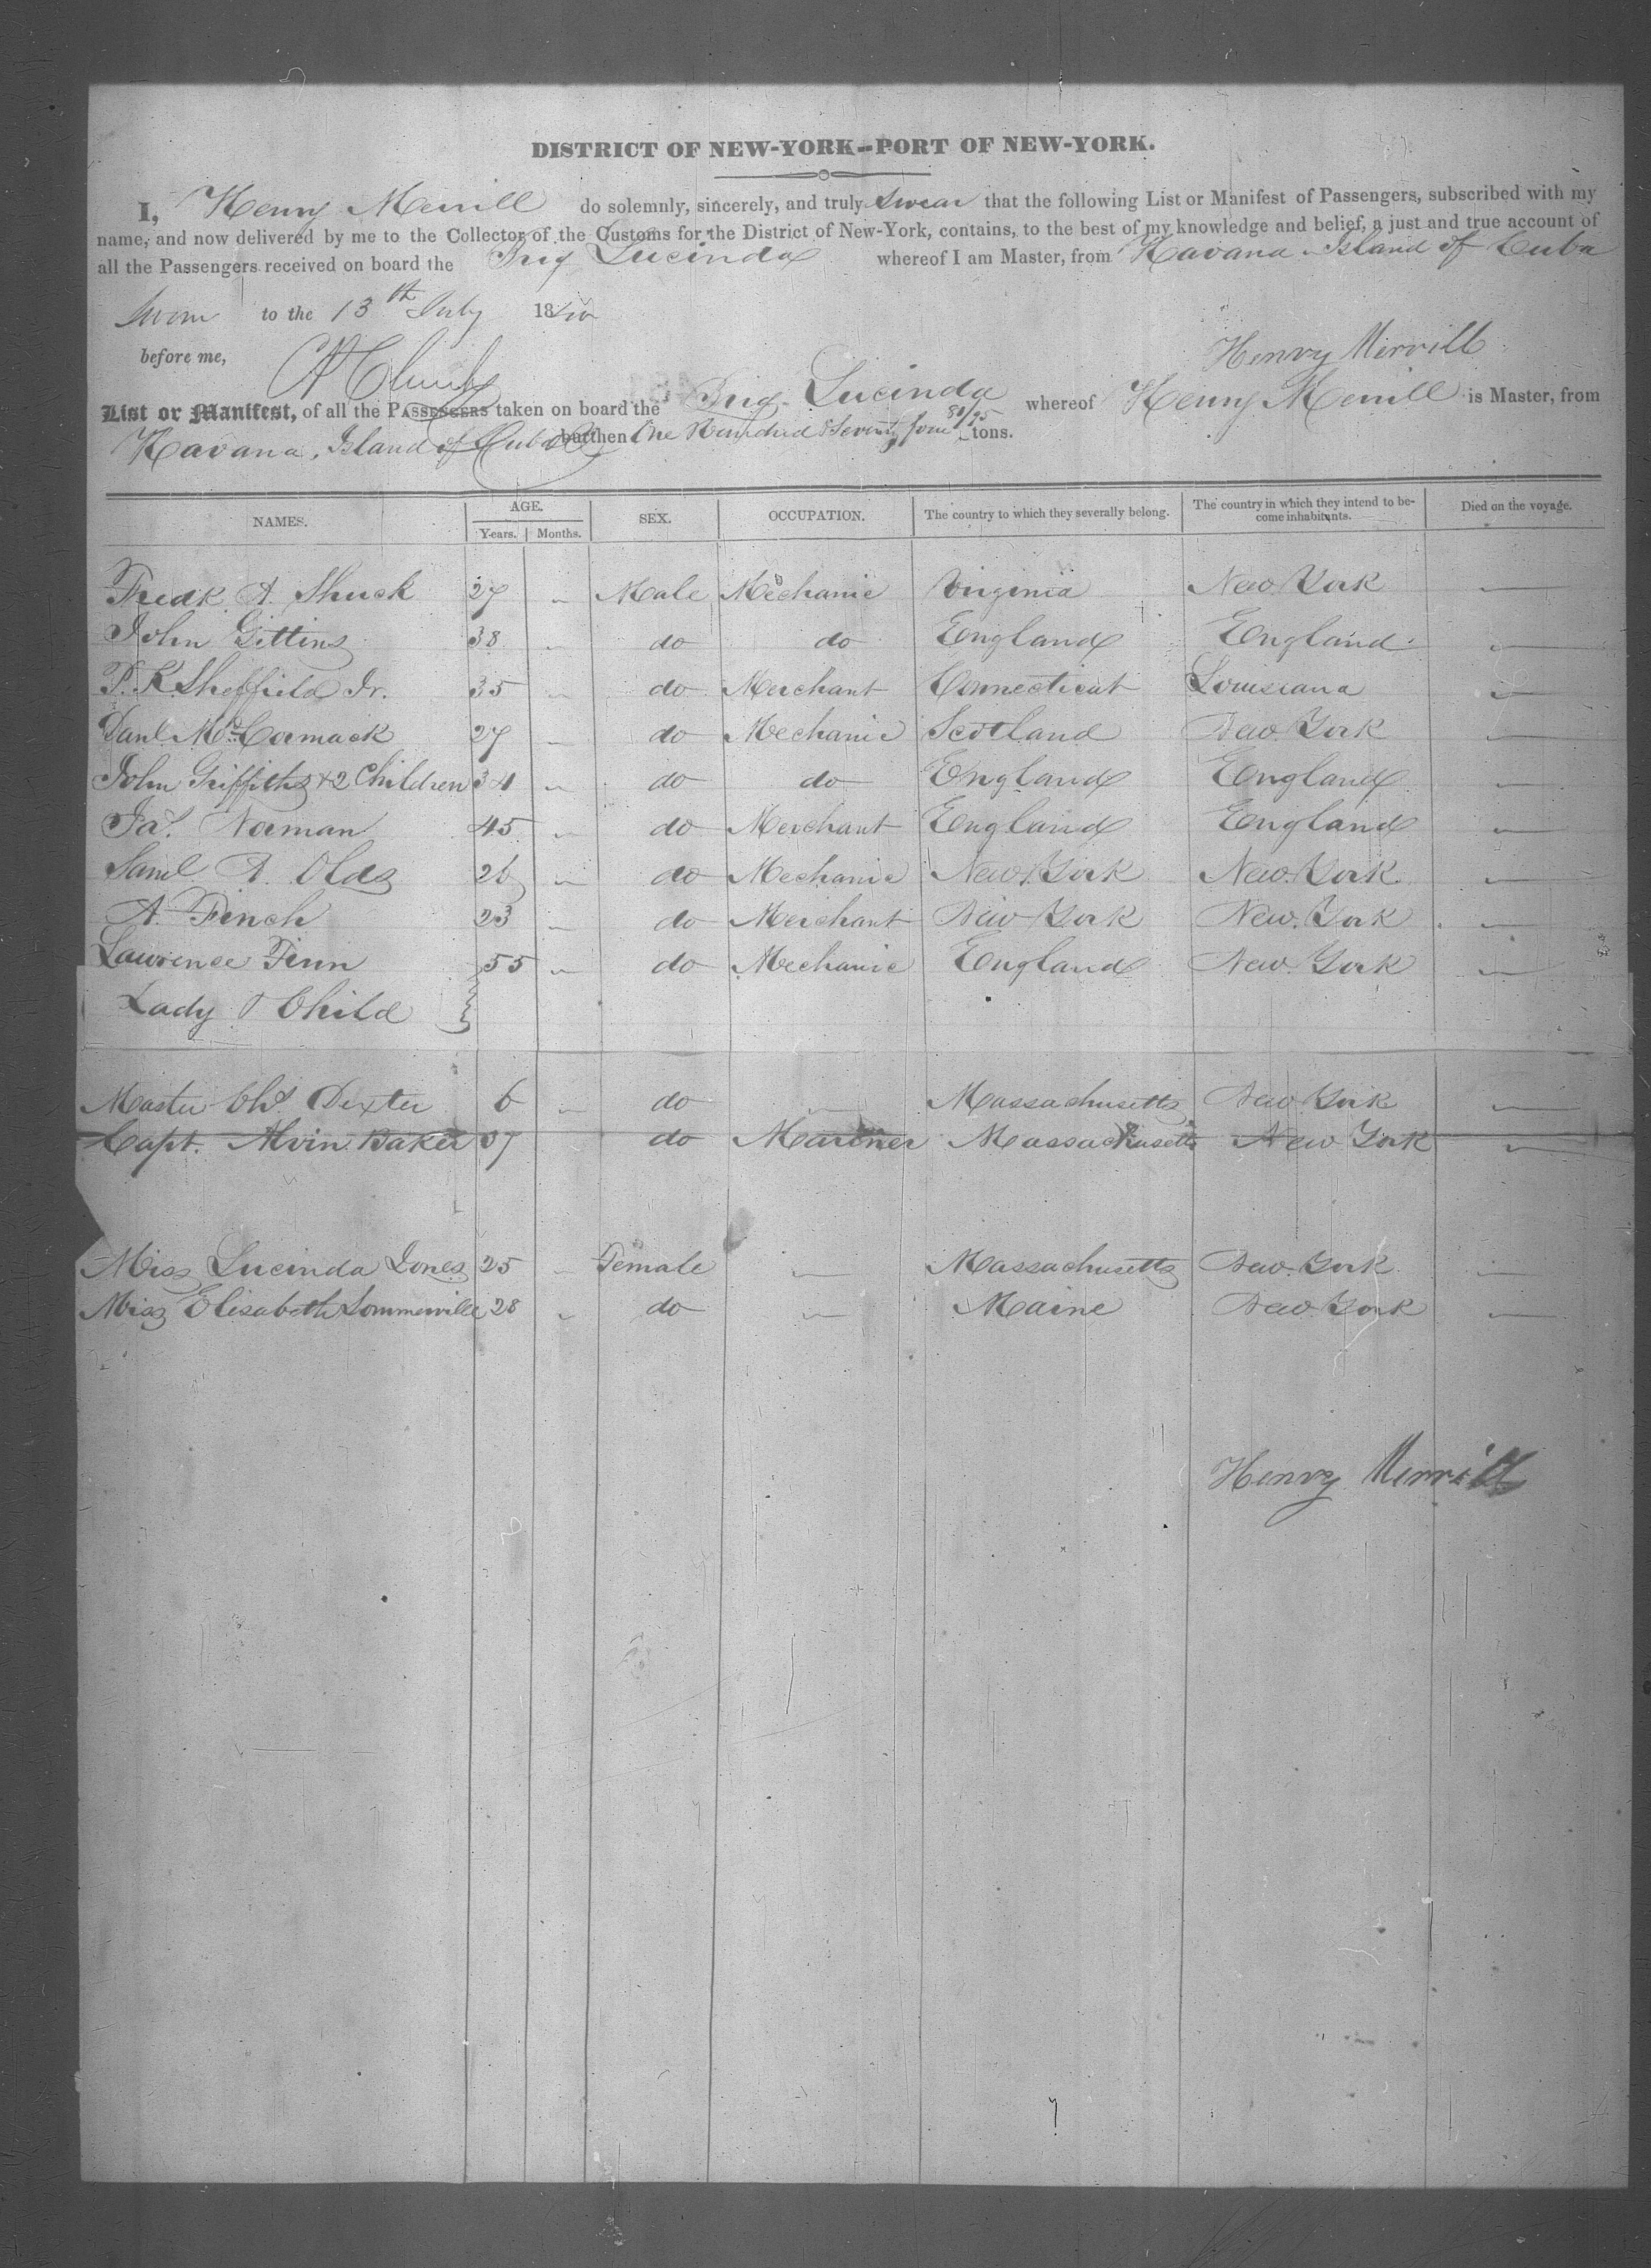 DISTRICT OF NEW-YORK--PORT OF NEW-YORK.
I, Henry Merrill do solemnly, sincerely, and truly swear that the following List or Manifest of Passengers, subscribed with my
name, and now delivered by me to the Collector of the Customs for the District of New-York, contains, to the best of my knowledge and belief, a just and true account of
all the Passengers received on board the Brig Lucinda whereof I am Master, from Havana Island of Cuba
Sworn to the 13th July 1840
before me,
Henry Merrill
List or Manifest, of all the PASSENGERS taken on board the Brig Lucinda whereof Henry Merrill is Master, from
Havana, Island of Cuba burthen One Hundred & Seventy four 81/95 tons.
NAMES. AGE. SEX. OCCUPATION. The country to which they severally belong. The country in which they intend to be- Died on the voyage.
Years. Months. come inhabitants.
Fredk. A. Shuck 27 " Male Mechanic Virginia New York —
John Gittins 38 " do do England England —
P. K. Sheffield Jr. 35 " do Merchant Connecticut Louisiana —
Danl. McCormack 27 " do Mechanic Scotland New York —
John Griffiths & 2 Children 34 " do do England England —
Jas. Norman 45 " do Merchant England England —
Saml. A. Olds 26 " do Mechanic New York New York —
A. Finch 23 " do Merchant New York New York —
Lawrence Finn 55 " do Mechanic England New York —
Lady & Child }
Master Chs. Dexter 6 " do " Massachusetts New York —
Capt. Alvin Baker 37 do Mariner Massachusetts New York —
Miss Lucinda Jones 25 " Female — Massachusetts New York —
Miss Elisabeth Sommerville 28 " do — Maine New York —
Henry Merrill